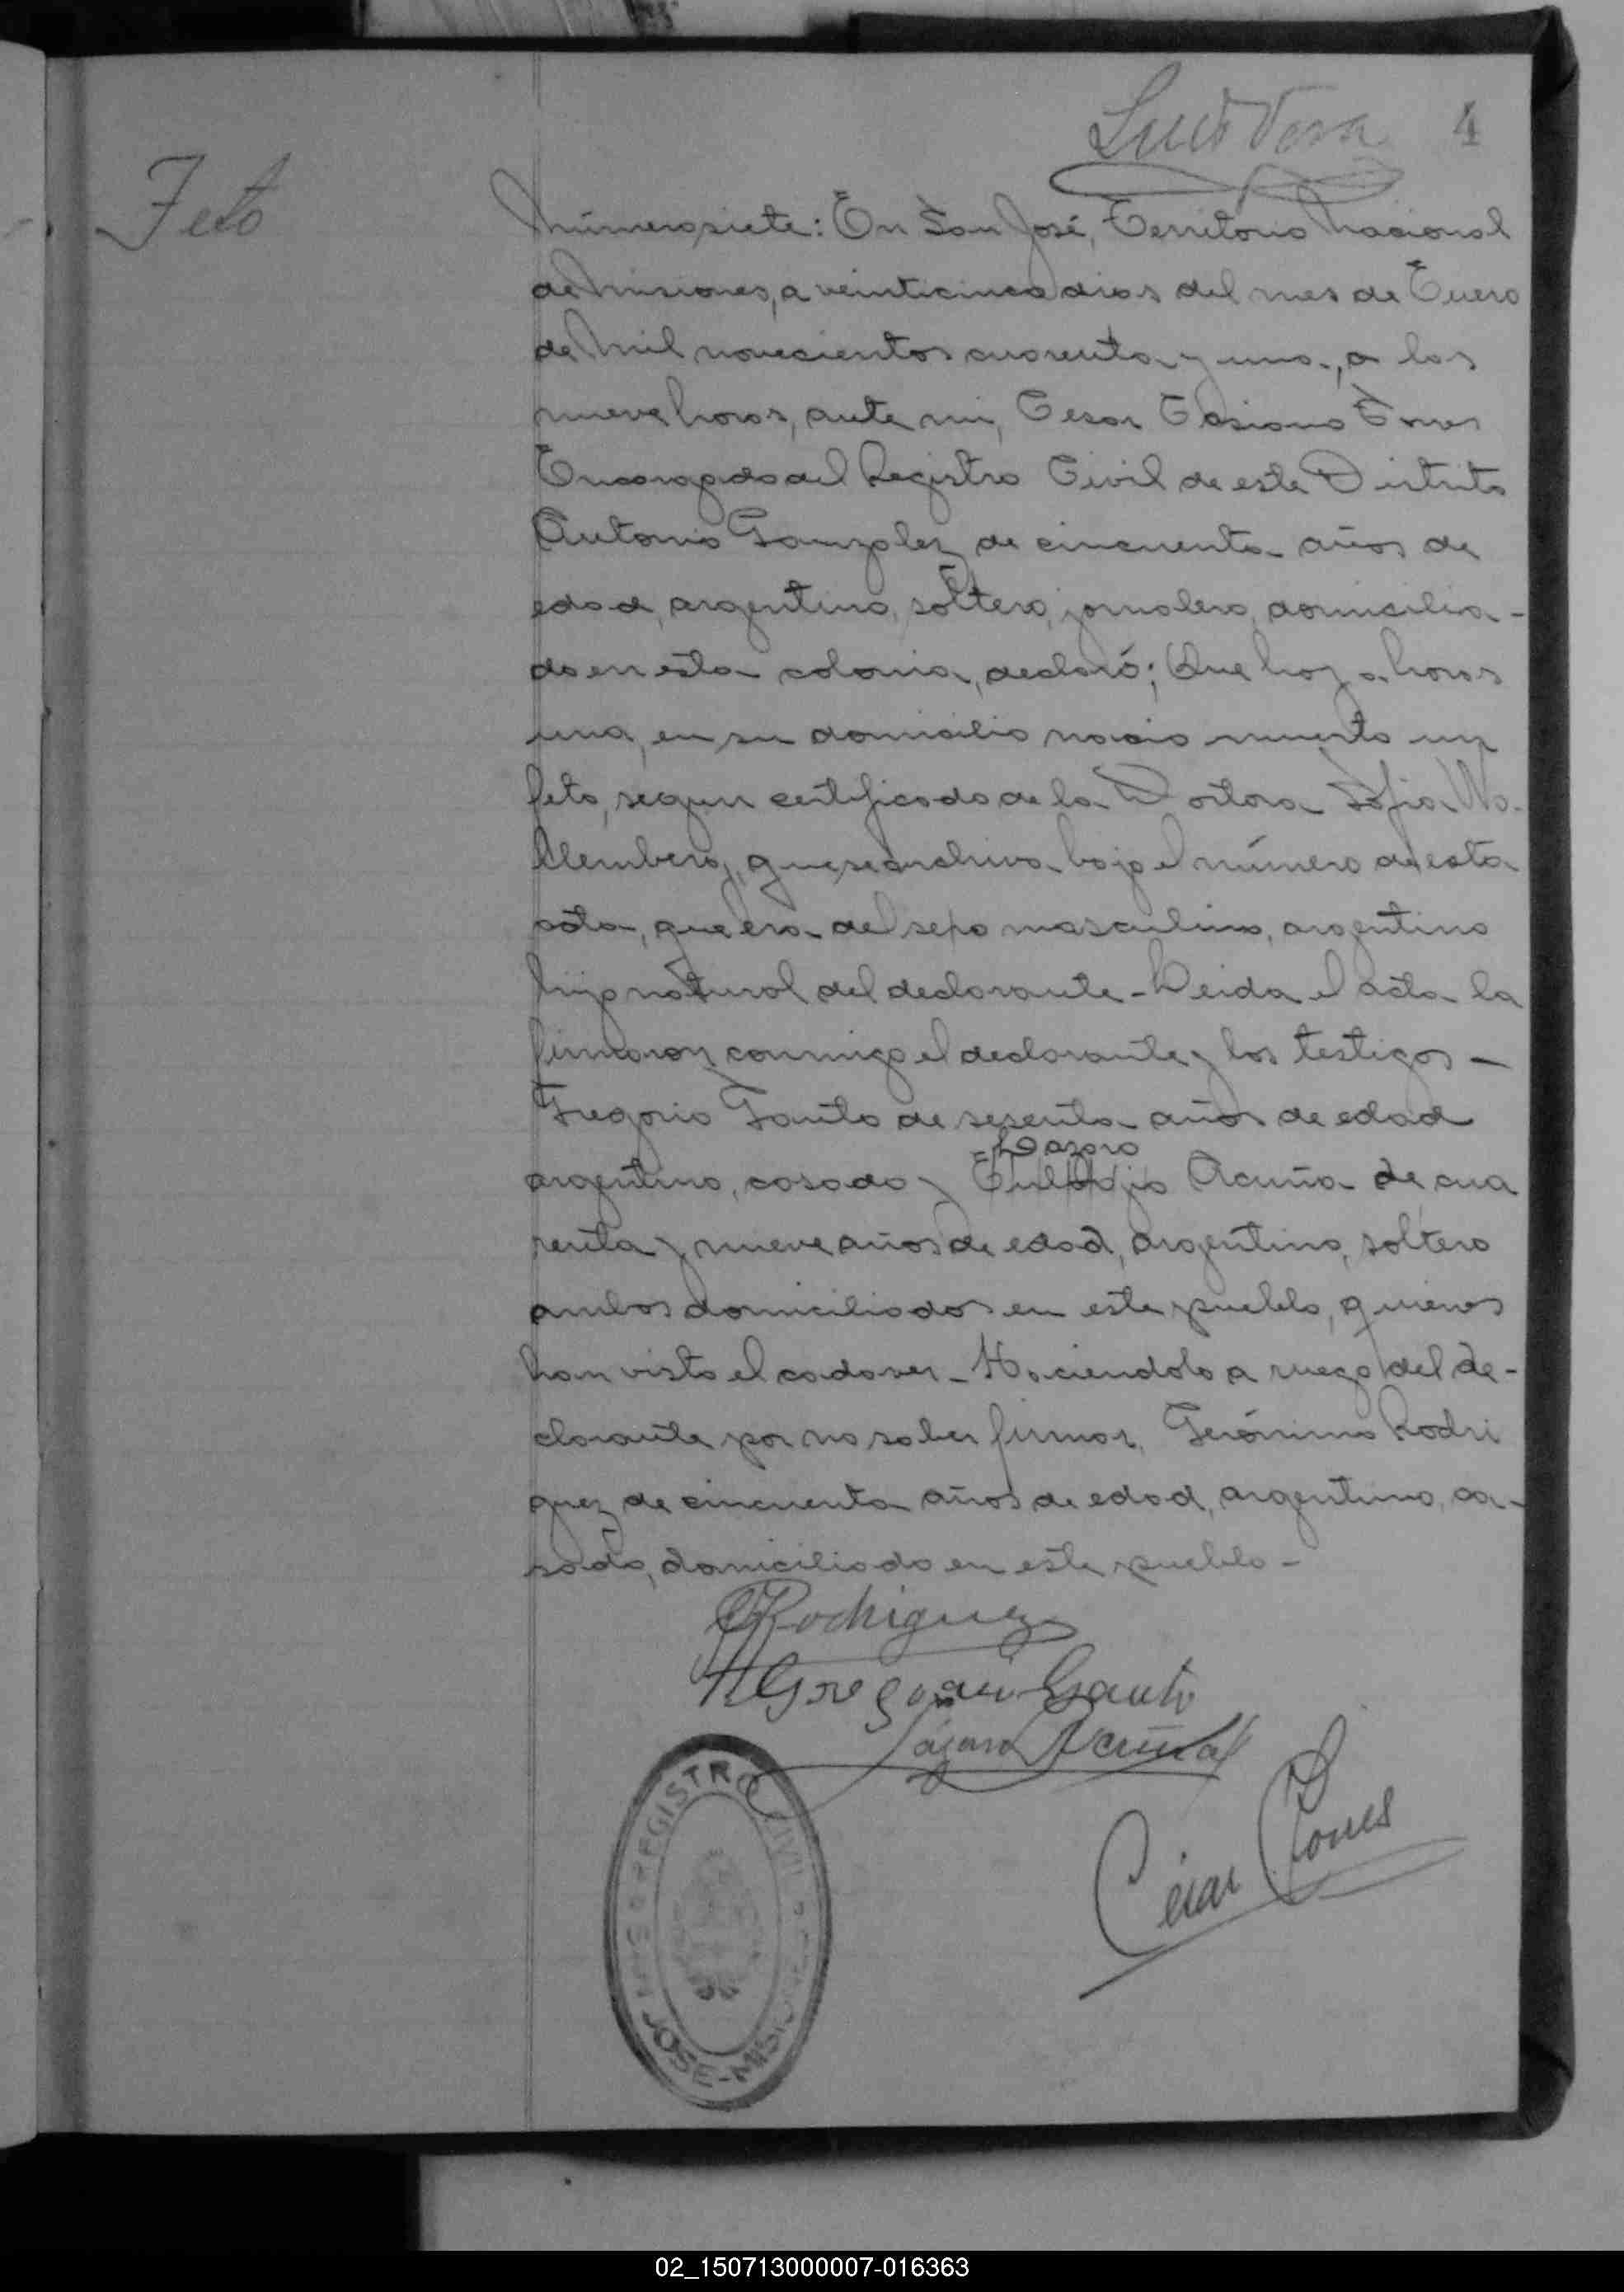 4
Feto
Número siete: En San José, Territorio Nacional
de Misiones, a veinticinco dias del mes de Enero
de Mil novecientos cuarenta y uno, a las
nueve horas, ante mi, Cesar Torres
Encargado del Registro Civil de este Distrito
Antonio Gonzalez de cincuenta años de
edad, argentino, soltero, jornalero, domicilia-
do en esta colonia, declaró; Que hoy a horas
una, en su domicilio nacio muerto un
feto, segun certificado de la Doctora Sofia Wa-
llemberg, que se archiva bajo el número de esta
acta, que era del sexo masculino, argentino
hijo natural del declarante - Leida el acta la
firmaron conmigo el declarante y los testigos -
Gregorio Gauto de sesenta años de edad
Lazaro
argentino, casado y Acuña de cua
renta y nueve años de edad, argentino, soltero
ambos domiciliados en este pueblo, quienes
han visto el cadaver - Haciendolo a ruego del de-
clarante por no saber firmar, Gerónimo Rodri
guez de cincuenta años de edad, argentino, ca-
sado, domiciliado en este pueblo -
Rodriguez
Gregorio Gauto
Lázaro Acuña
César Torres
REGISTRO CIVIL
JOSE-MISIONES
02_150713000007-016363